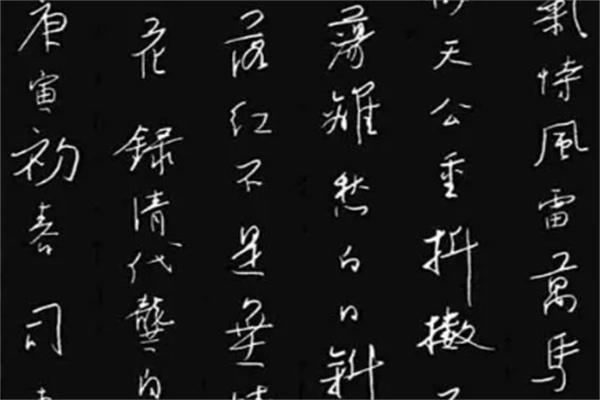 氣恃風雷萬馬
天公重抖擻
蕩離愁白日斜
落紅不是無
花 錄清代龔自
庚寅初春 司